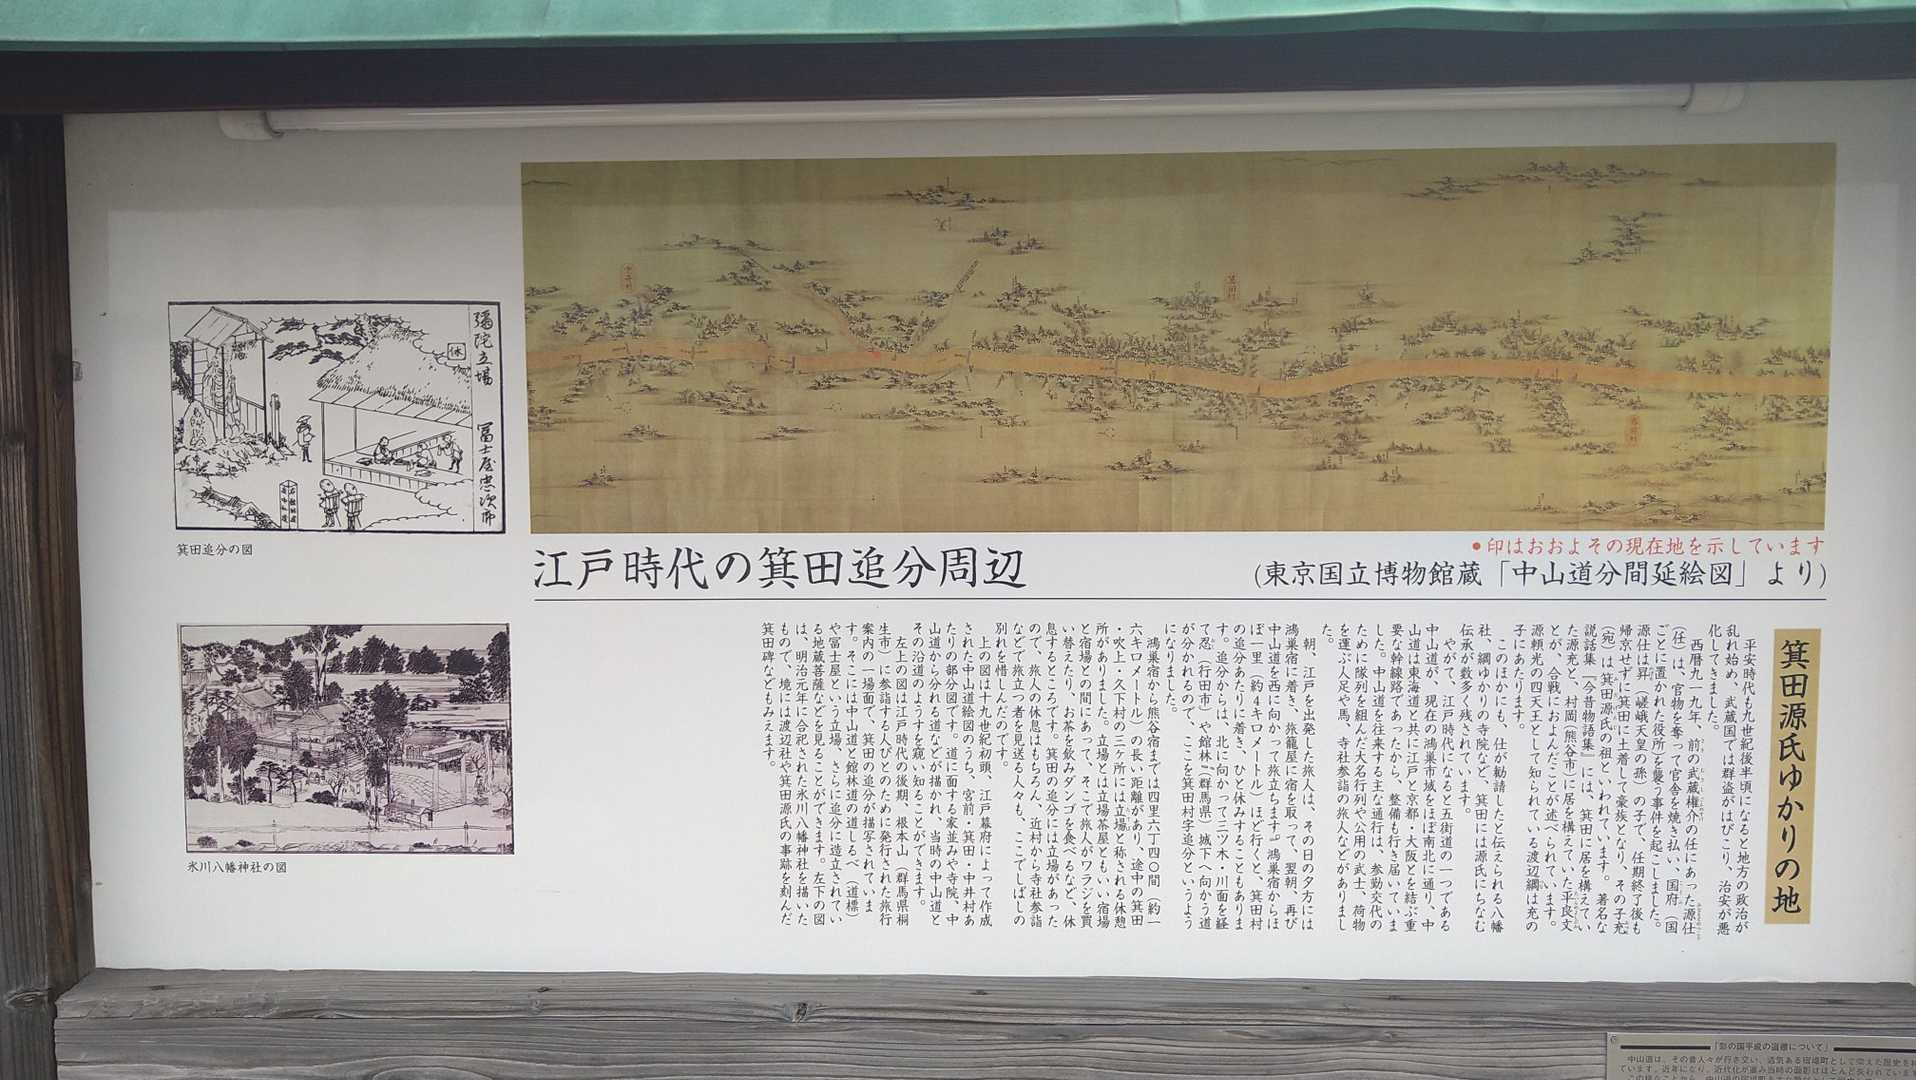 箕田源氏ゆかりの地
平安時代も九世紀後半頃になると地方の政治が
乱れ始め、武蔵国では群盗がはびこり、治安が悪
化してきました。
西暦九一九年、前の武蔵権介の任にあった源仕
(任)は、官物を奪って官舎を焼き払い、国府(国
ごとに置かれた役所)を襲う事件を起こしました。
源仕は昇(嵯峨天皇の孫)の子で、任期終了後も
帰京せずに箕田に土着して豪族となり、その子充
(宛)は箕田源氏の祖といわれています。著名な
説話集『今昔物語集』には、箕田に居を構えてい
た源充と、村岡(熊谷市)に居を構えていた平良文
とが、合戦におよんだことが述べられています。
源頼光の四天王として知られている渡辺綱は充の
子にあたります。
このほかにも、仕が勧請したと伝えられる八幡
社、綱ゆかりの寺院など、箕田には源氏にらなむ
伝承が数多く残されています。
やがて、江戸時代になると五街道の一つである
中山道が、現在の鴻巣市域をほぼ南北に通り、中
山道は東海道と共に江戸と京都・大阪とを結ぶ重
要な幹線路であったから、整備も行き届いていま
した。中山道を往来する主な通行は、参勤交代の
ために隊列を組んだ大名行列や公用の武士、荷物
を運ぶ人足や馬、寺社参詣の旅人などがありまし
た。
朝、江戸を出発した旅人は、その日の夕方には
鴻巣宿に着き、旅籠屋に宿を取って、翌朝、再び
中山道を西に向かって旅立ちます。鴻巣宿からほ
ぼ一里(約4キロメートル)ほど行くと、箕田村
の追分あたりに着き、ひと休みすることもありま
す。追分からは、北に向かって三ツ木・川面を経
て忍(行田市)や館林(群馬県)城下へ向かう道
が分かれるので、ここを箕田村字追分というよう
になりました。
鴻巣宿から熊谷宿までは四里六丁四〇間(約一
六キロメートル)の長い距離があり、途中の箕田
・吹上・久下村の三ヶ所には立場と称される休憩
所がありました。立場とは立場茶屋ともいい宿場
と宿場との間にあって、そこで旅人がワラジを買
い替えたり、お茶を飲みダンゴを食べるなど、休
息するところです。箕田の追分には立場があった
ので、旅人の休息はもちろん、近村から寺社参詣
などで、旅立つ者を見送る人々も、ここでしばしの
別れを惜しんだのです。
上の図は十九世紀初頭、江戸幕府によって作成
された中山道絵図のうち、宮前・箕田・中井村あ
たりの部分図です。道に面する家並みや寺院、中
山道から分かれる道などが描かれ、当時の中山道と
その沿道のようすを窺い知ることができます。
左上の図は江戸時代の後期、根本山(群馬県桐
生市)に参詣する人びとのために発行された旅行
案内の一場面で、箕田の追分が描写されていま
す。そこには中山道と館林道の道しるべ(道標)
や冨士屋という立場、さらに追分に造立されてい
る地蔵菩薩などを見ることができます。左下の図
は、明治元年に合祀された氷川八幡神社を描いた
もので、境には渡辺社や箕田源氏の事跡を刻んだ
箕田碑などもみえます。
●印はおおよその現在地を示しています
江戸時代の箕田追分周辺
(東京国立博物館蔵「中山道分間延絵図」より)
箕田村
彌陀立場
冨士屋忠次郎
休
箕田追分の図
氷川八幡神社の図
「彩の国平成の道標について」